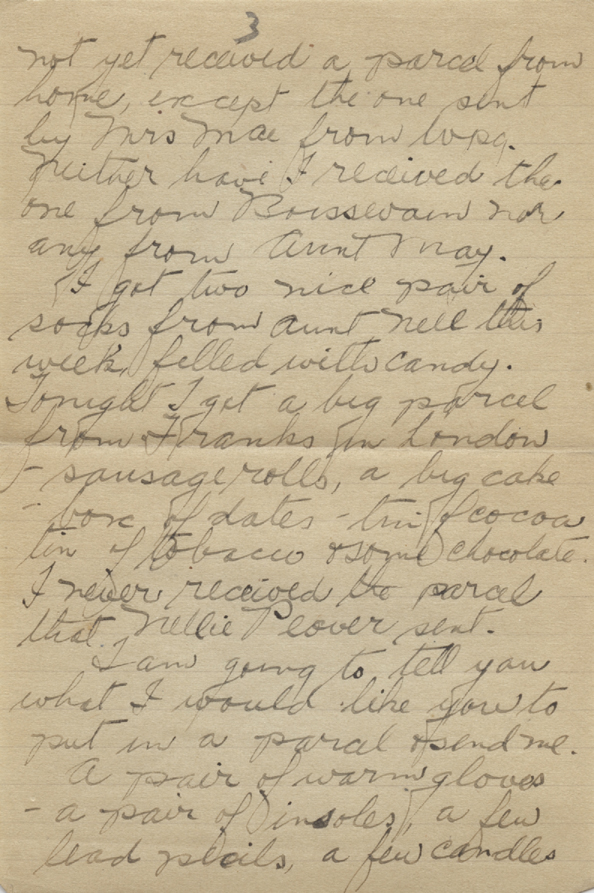 3
not yet received a parcel from
home, except the one sent
by Mrs Mae from Wpg.
Neither have I received the
one from Boissevain nor
any from Aunt May.
I got two nice pair of
socks from Aunt Nell this
week, filled with candy.
Tonight I got a big parcel
from Franks in London
- sausage rolls, a big cake
- box of dates - tin of cocoa
tin of tobacco & some chocolate.
I never received the parcel
that Nellie Plover sent.
I am going to tell you
what I would like you to
put in a parcel & send me.
A pair of warm gloves
- a pair of insoles, a few
lead pecils, a few candles